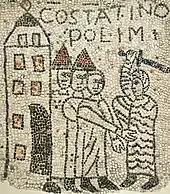 COSTATINO
POLIMI